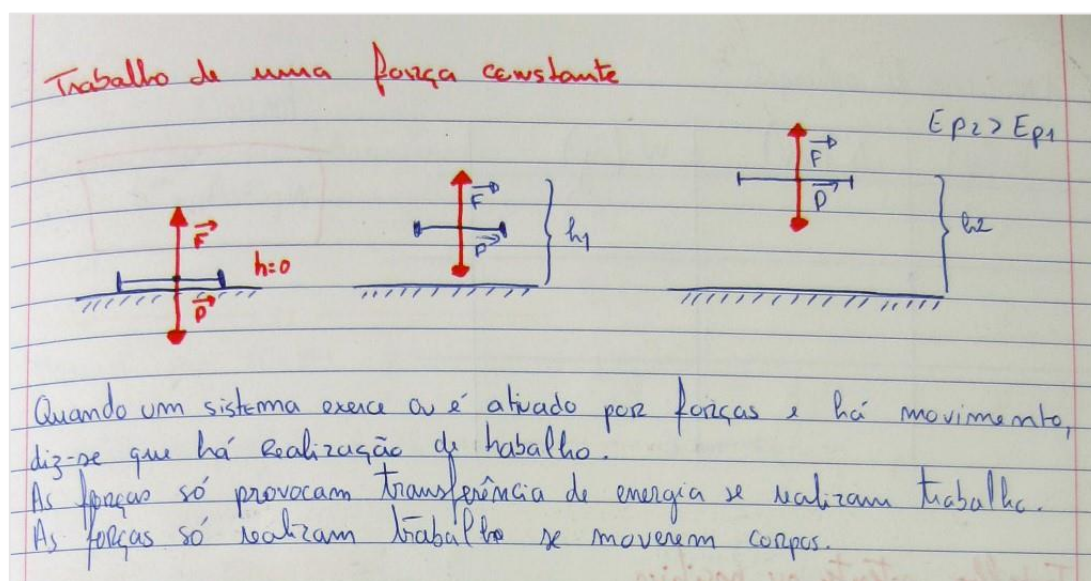 Trabalho de uma força constante
Ep2 > Ep1
F
P
h=0
F
P
h1
F
P
h2
Quando um sistema exerce ou é ativado por forças e há movimento,
diz-se que há realização de trabalho.
As forças só provocam transferência de energia se realizam trabalho.
As forças só realizam trabalho se moverem corpos.